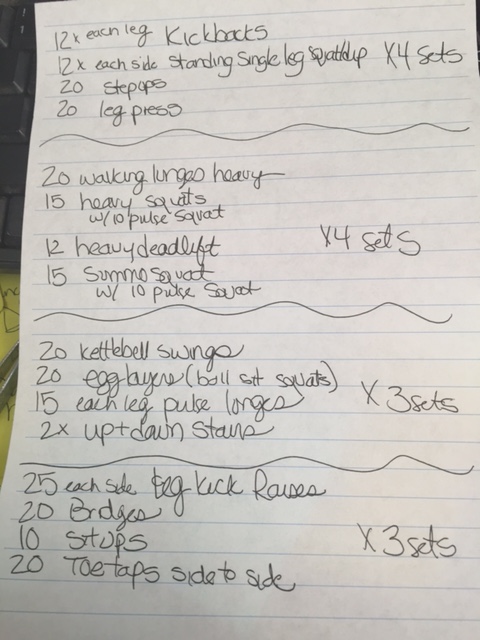 12x each leg Kickbacks
12x each side standing single leg squat/dip X4 sets
20 stepups
20 leg press
20 walking lunges heavy
15 heavy squats
w/10 pulse squat
12 heavy deadlift X4 sets
15 Summo squat
w/ 10 pulse Squat
20 kettlebell swings
20 egg layers (ball sit squats)
15 each leg pulse longes X 3 sets
2x up+down stairs
25 each side leg Kick Raises
20 Bridges
10 situps X 3 sets
20 Toetaps side to side